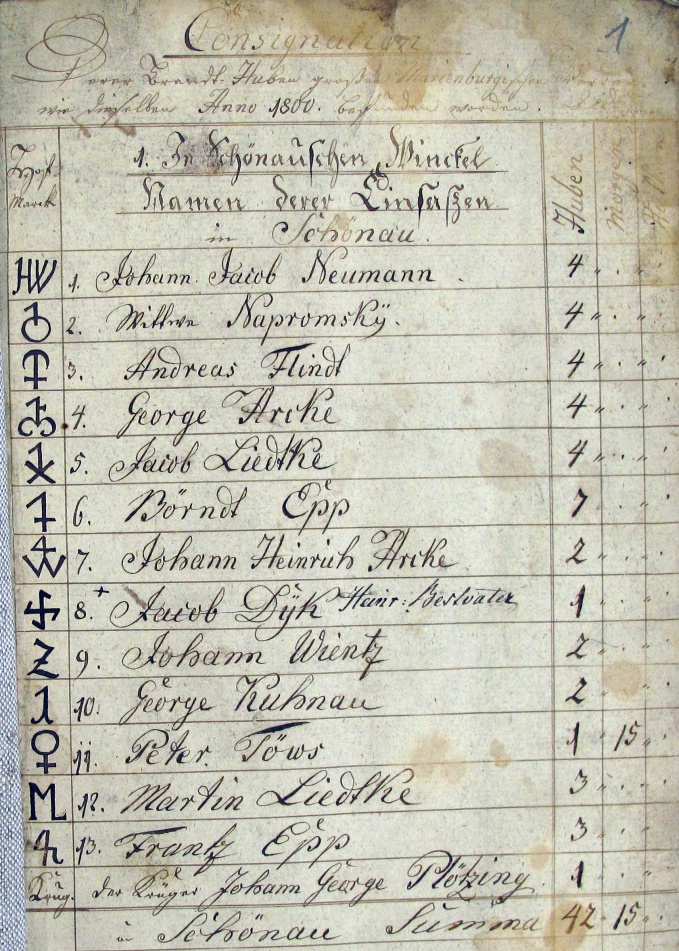 1
Consignation
Derer Brandt-Huben großen Marienburgischen
wie dieselben Anno 1800. befunden worden.
Hoff-Marck
1. In Schönauschen Winckel
Namen derer Einsaßen
in Schönau.
Huben Morgen
HW 1. Johann Jacob Neumann. 4 " . "
2. Wittwe Napromskÿ. 4 " . "
3. Andreas Flindt 4 " . "
4. George Arcke 4 " . "
5. Jacob Liedtke 4 " . "
6. Börndt Epp 7 " . "
7. Johann Heinrich Arcke 2 " . "
8. + Jacob Dÿk Heinr: Bestvater 1 " . "
9. Johann Wientz 2 " . "
10. George Kuhnau 2 " . "
11. Peter Töws 1 15 "
12. Martin Liedtke 3 " . "
13. Frantz Epp 3 " . "
Krug. der Krüger Johann George Plötzing 1 " . "
in Schönau Summa 42 15 "